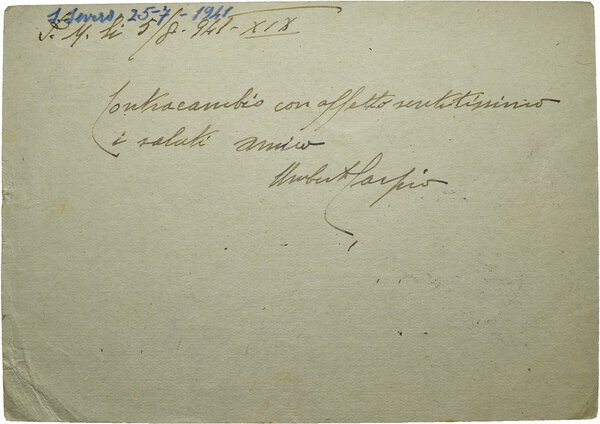 S. Severo, 25-7-1941
P. M. li 5/8-941-XIX
Contracambio con affetto sentitissimo
i saluti amico
Umberto Carpio